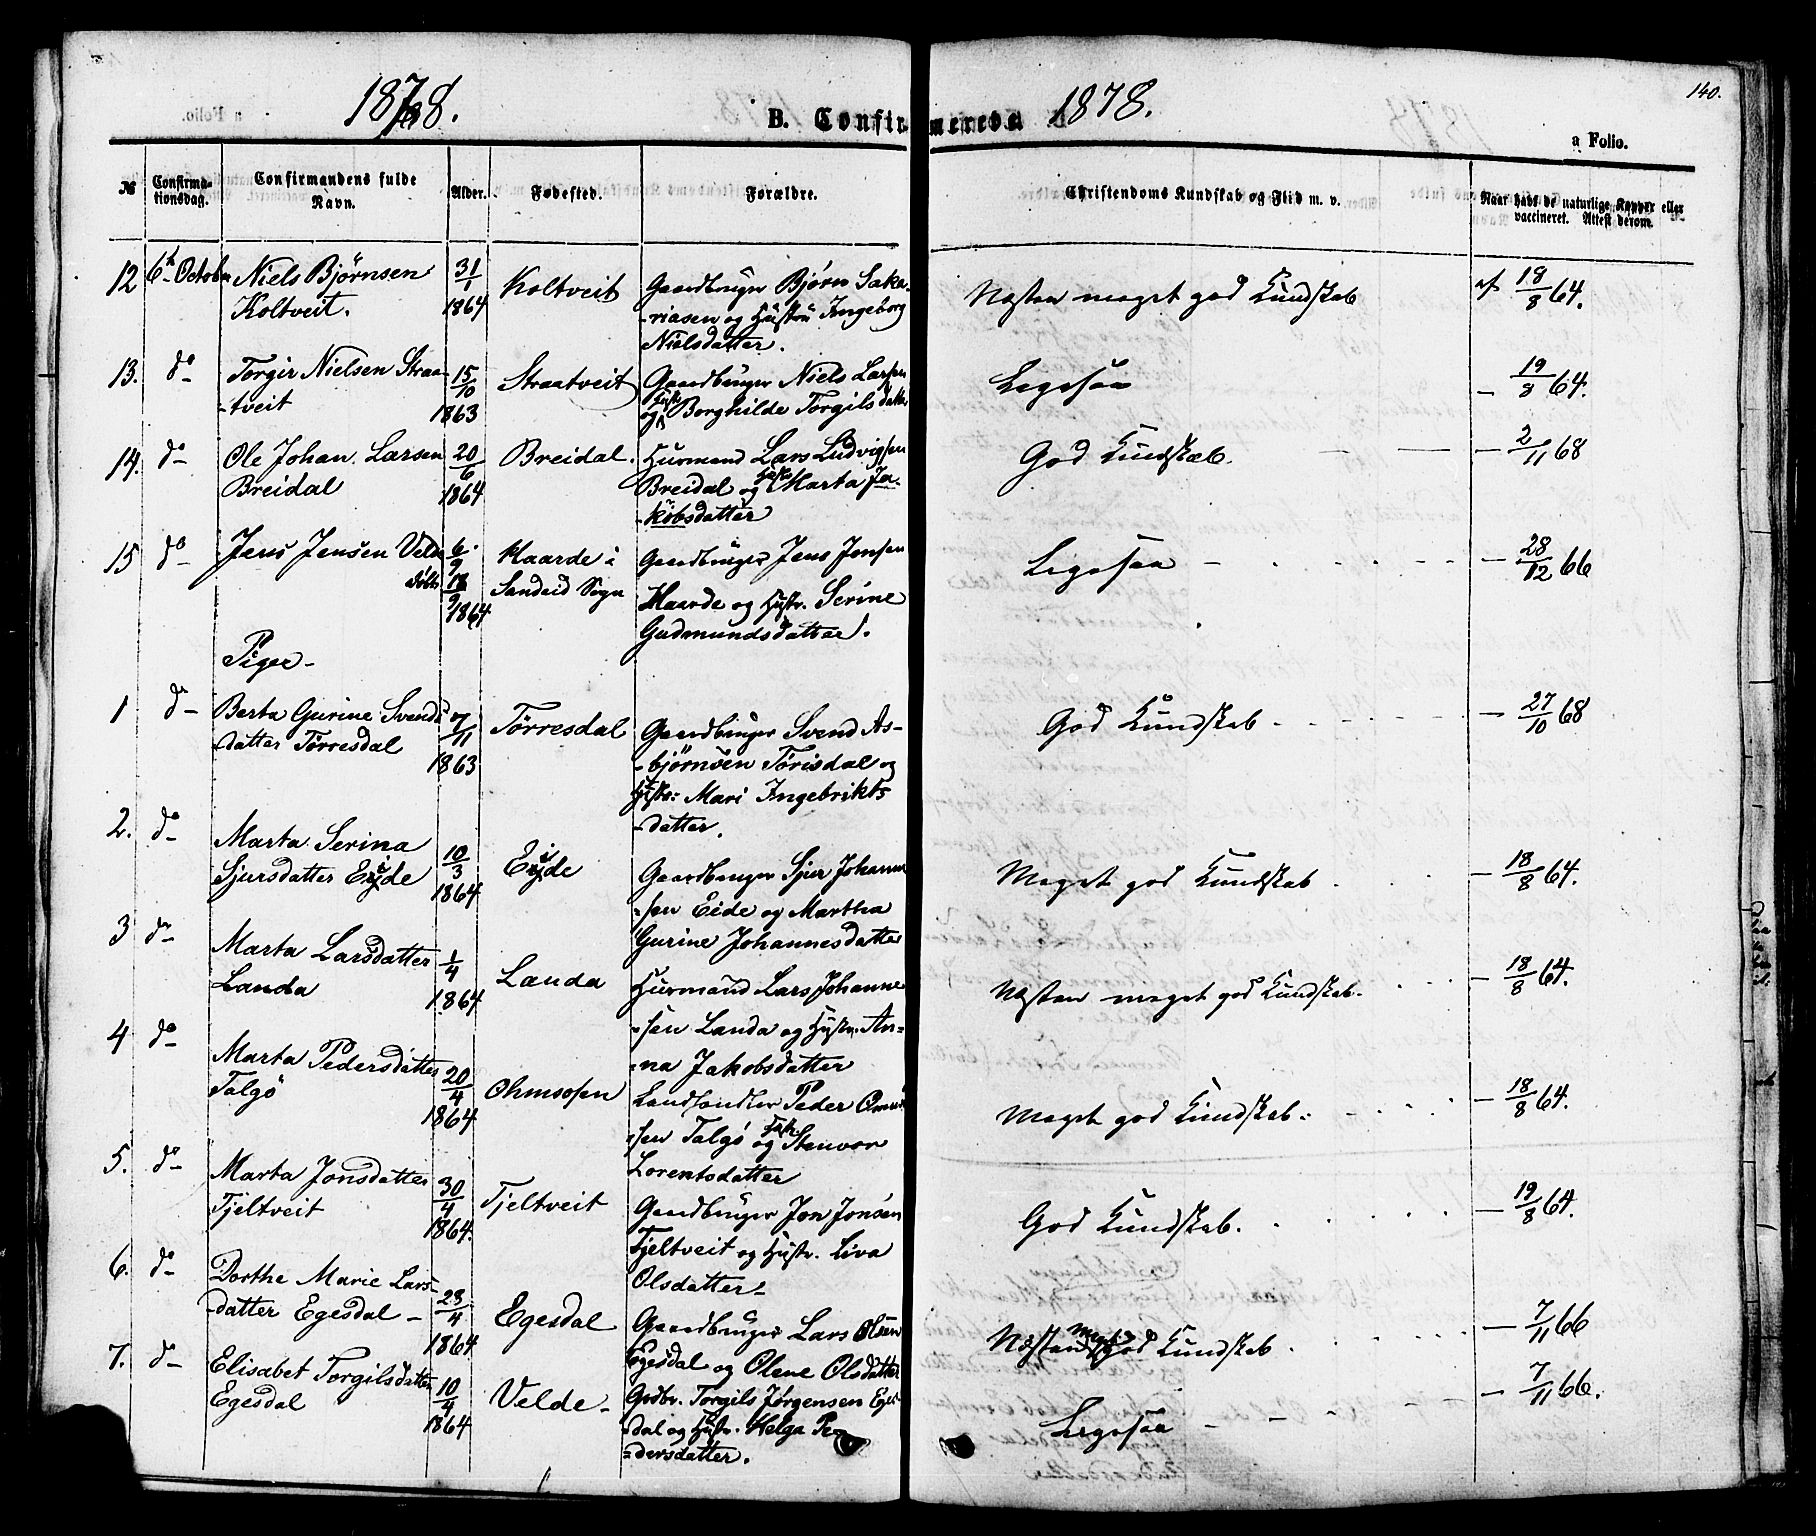 1878.
B. Confirmerede
1878.
140.
a Folio.
№
Confirmationsdag.
Confirmandens fulde Navn.
Alder.
Fødested.
Forældre.
Christendoms Kundskab og Flid m. v.
Naar havt de naturlige Kopper eller vaccineret. Attest derom.
12 6te Octobr Niels Bjørnsen 31/1 Koltveit Gaardbruger Bjørn Saka- Næsten meget god Kundskab af 18/8 64.
Koltveit. 1864 -riasen og Hustru Ingeborg
Nielsdatter.
13. do Torgir Nielsen Straa- 15/10 Straatveit Gaardbruger Niels Larsen Ligesaa - 19/8 64.
-tveit 1863 og Hust. Borghilde Torgilsdatter
14. do Ole Johan Larsen 20/6 Breidal. Husmand Lars Ludvigsen God Kundskab. - 2/11 68
Breidal 1864 Breidal og Marta Ja-
-kobsdatter
15 do Jens Jensen Velde 6/9 Haarde i Gaardbruger Jens Jensen Ligesaa - 28/12 66
døbt 18/9 1864 Sandeid Sogn Haarde og Hustr. Serine
Gudmundsdatter.
Piger-
1 do Berta Gurine Svends- 7/11 Tørresdal Gaardbruger Svend As- God Kundskab - 27/10 68
-datter Tørresdal 1863 -bjørnsen Tørisdal og
Hustr: Mari Ingebrikts
-datter.
2. do Marta Serina 10/3 Eide Gaardbruger Sjur Johanne- Meget god Kundskab - 18/8 64.
Sjursdatter Eide 1864 -sen Eide og Martha
Gurine Johannesdatter
3 do Marta Larsdatter 1/4 Landa Husmand Lars Johanne- Næsten meget god Kundskab. - 18/8 64.
Landa 1864 -sen Landa og Hustr. An-
-na Jakobsdatter
4 do Marta Pedersdatter 20/4 Ohmsosen Landhandler Peder Omund- Meget god Kundskab. - 18/8 64.
Talgø 1864 -sen Talgø og Stenvor
Lorentsdatter
5. do Marta Jonsdatter 30/4 Tjeltveit Gaardbruger Jon Jonsen God Kundskab. - 19/8 64.
Tjeltveit 1864. Tjeltveit og Hustr. Liva
Olsdatter-
6. do Dorthe Marie Lars- 23/4 Egesdal Gaardbruger Lars Olsen Næsten meget god Kundskab. - 7/11 66
-datter Egesdal - 1864 Egesdal og Olene Olsdatter
7. do Elisabet Torgilsdatter 10/4 Velde- Grdbr. Torgils Jørgensen Eges- Ligesaa - 7/11 66.
Egesdal 1864 -dal og Hustr. Helga Pe-
-dersdatter.